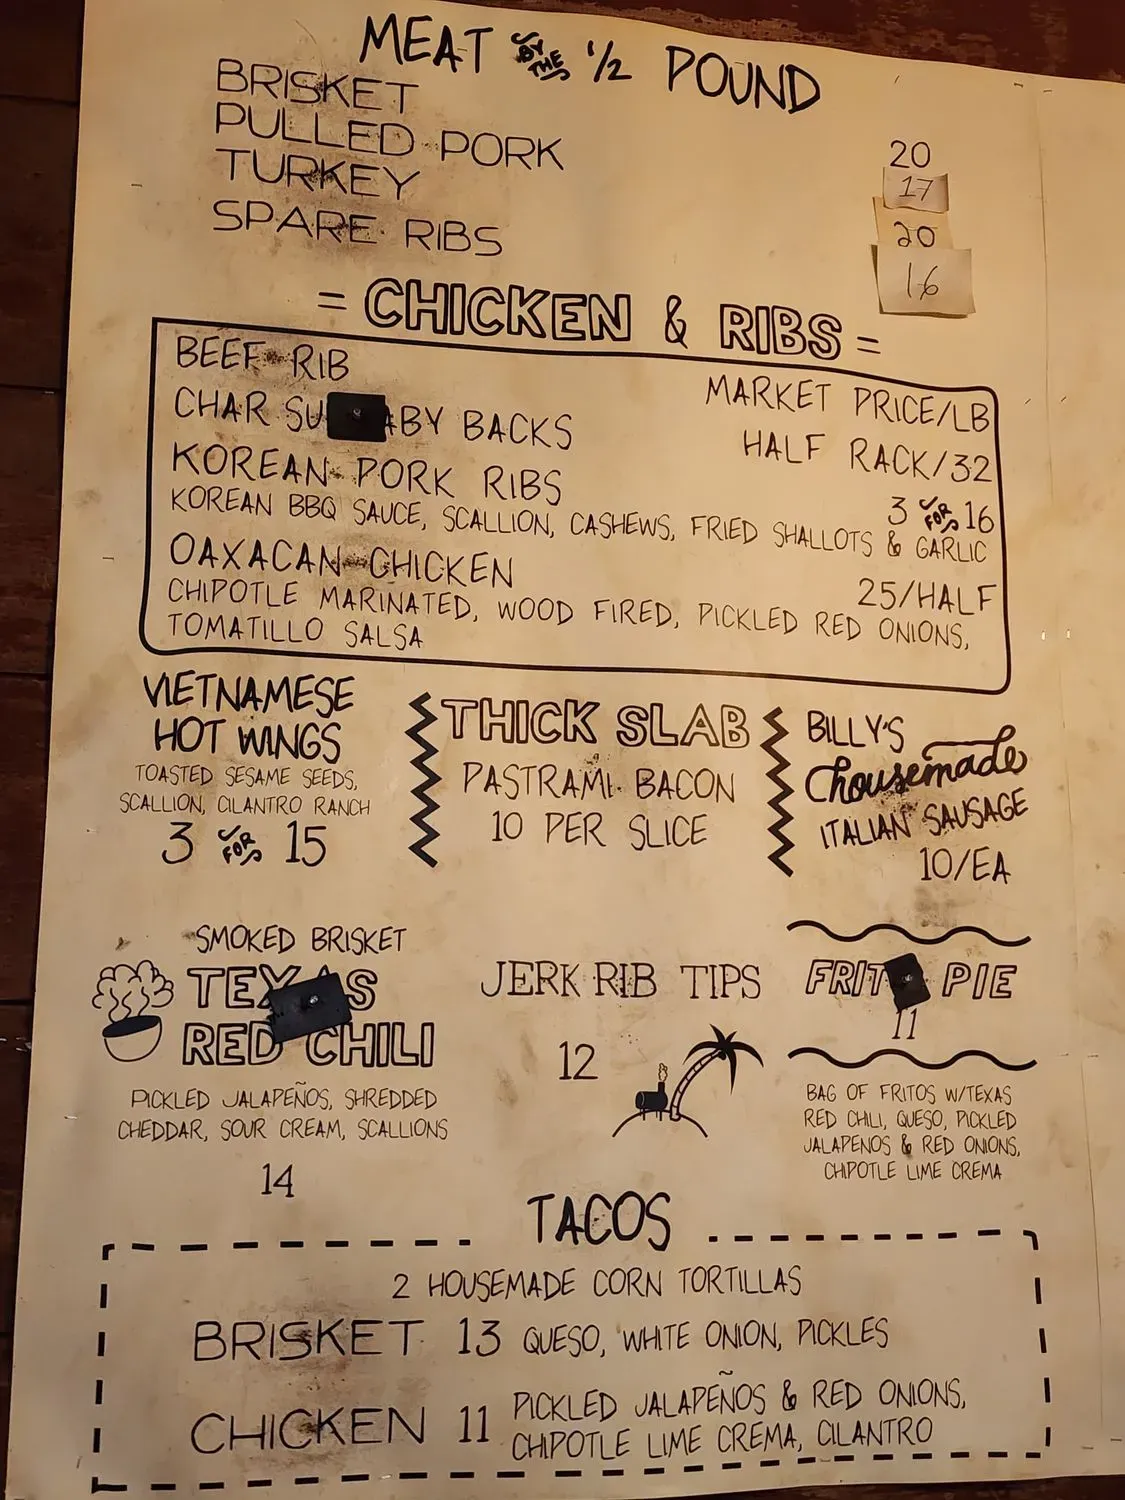 MEAT BY THE 1/2 POUND
BRISKET 20
PULLED PORK 17
TURKEY 20
SPARE RIBS 16
= CHICKEN & RIBS =
BEEF RIB MARKET PRICE/LB
CHAR SU ABY BACKS HALF RACK/32
KOREAN PORK RIBS 3 FOR 16
KOREAN BBQ SAUCE, SCALLION, CASHEWS, FRIED SHALLOTS & GARLIC
OAXACAN CHICKEN 25/HALF
CHIPOTLE MARINATED, WOOD FIRED, PICKLED RED ONIONS,
TOMATILLO SALSA
VIETNAMESE
HOT WINGS
TOASTED SESAME SEEDS,
SCALLION, CILANTRO RANCH
3 FOR 15
THICK SLAB
PASTRAMI BACON
10 PER SLICE
BILLY'S
housemade
ITALIAN SAUSAGE
10/EA
SMOKED BRISKET
TEXAS
RED CHILI
PICKLED JALAPEÑOS, SHREDDED
CHEDDAR, SOUR CREAM, SCALLIONS
14
JERK RIB TIPS
12
FRIT PIE
11
BAG OF FRITOS W/TEXAS
RED CHILI, QUESO, PICKLED
JALAPENOS & RED ONIONS,
CHIPOTLE LIME CREMA
TACOS
2 HOUSEMADE CORN TORTILLAS
BRISKET 13 QUESO, WHITE ONION, PICKLES
CHICKEN 11 PICKLED JALAPEÑOS & RED ONIONS,
CHIPOTLE LIME CREMA, CILANTRO